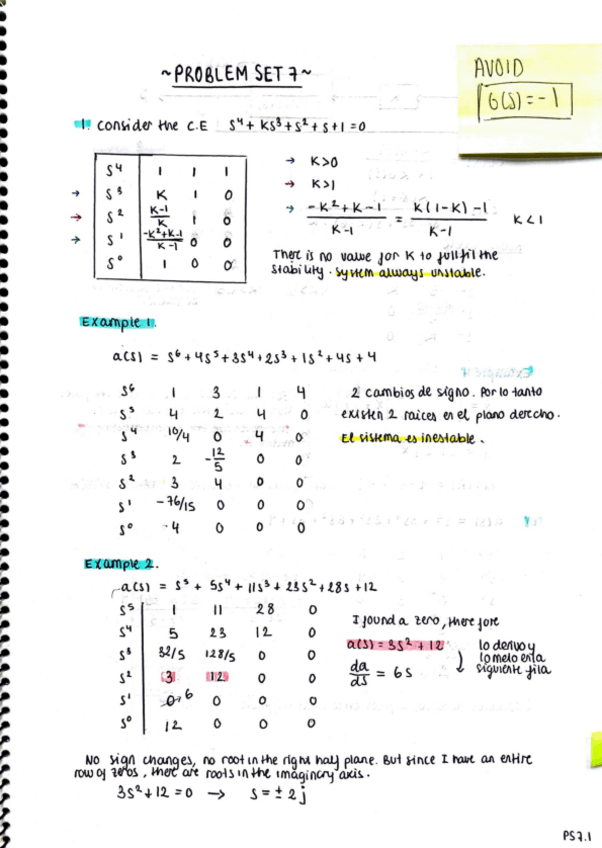 ~PROBLEM SET 7~
AVOID
G(s) = -1
1. Consider the C.E S⁴ + KS³ + S² + S + 1 = 0
S⁴ 1 1 1
S³ K 1 0
S² K-1/K 1 0
S¹ -K²+K-1/K-1 0 0
S⁰ 1 0 0
→ K>0
→ K>1
→ -K²+K-1/K-1 = K(1-K)-1/K-1 K<1
There is no value for K to fullfil the
stability. System always unstable.
Example 1.
a(s) = S⁶ + 4S⁵ + 3S⁴ + 2S³ + 1S² + 4S + 4
S⁶ 1 3 1 4
S⁵ 4 2 4 0
S⁴ 10/4 0 4 0
S³ 2 -12/5 0 0
S² 3 4 0 0
S¹ -76/15 0 0 0
S⁰ 4 0 0 0
2 cambios de signo. Por lo tanto
existen 2 raices en el plano dercho.
El sistema es inestable.
Example 2.
a(s) = S⁵ + 5S⁴ + 11S³ + 23S² + 28S + 12
S⁵ 1 11 28 0
S⁴ 5 23 12 0
S³ 32/5 128/5 0 0
S² 3 12 0 0
S¹ 0 6 0 0 0
S⁰ 12 0 0 0
I found a zero, there fore
a(s) = 3S² + 12
da/ds = 6s
lo derivo y
lo meto en la
siguiente fila
No sign changes, no root in the right half plane. But since I have an entire
row of zeros, there are roots in the imaginary axis.
3S² + 12 = 0 → S = ± 2j
PS7.1